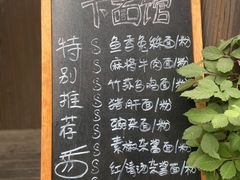 下面馆
特别推荐
S 鱼香鱼丝面/粉
S 麻椒牛肉面/粉
S 竹荪鸡汤面/粉
S 猪肝面/粉
S 豌杂面/粉
S 素椒杂酱面/粉
S 红烧肥肠面/粉